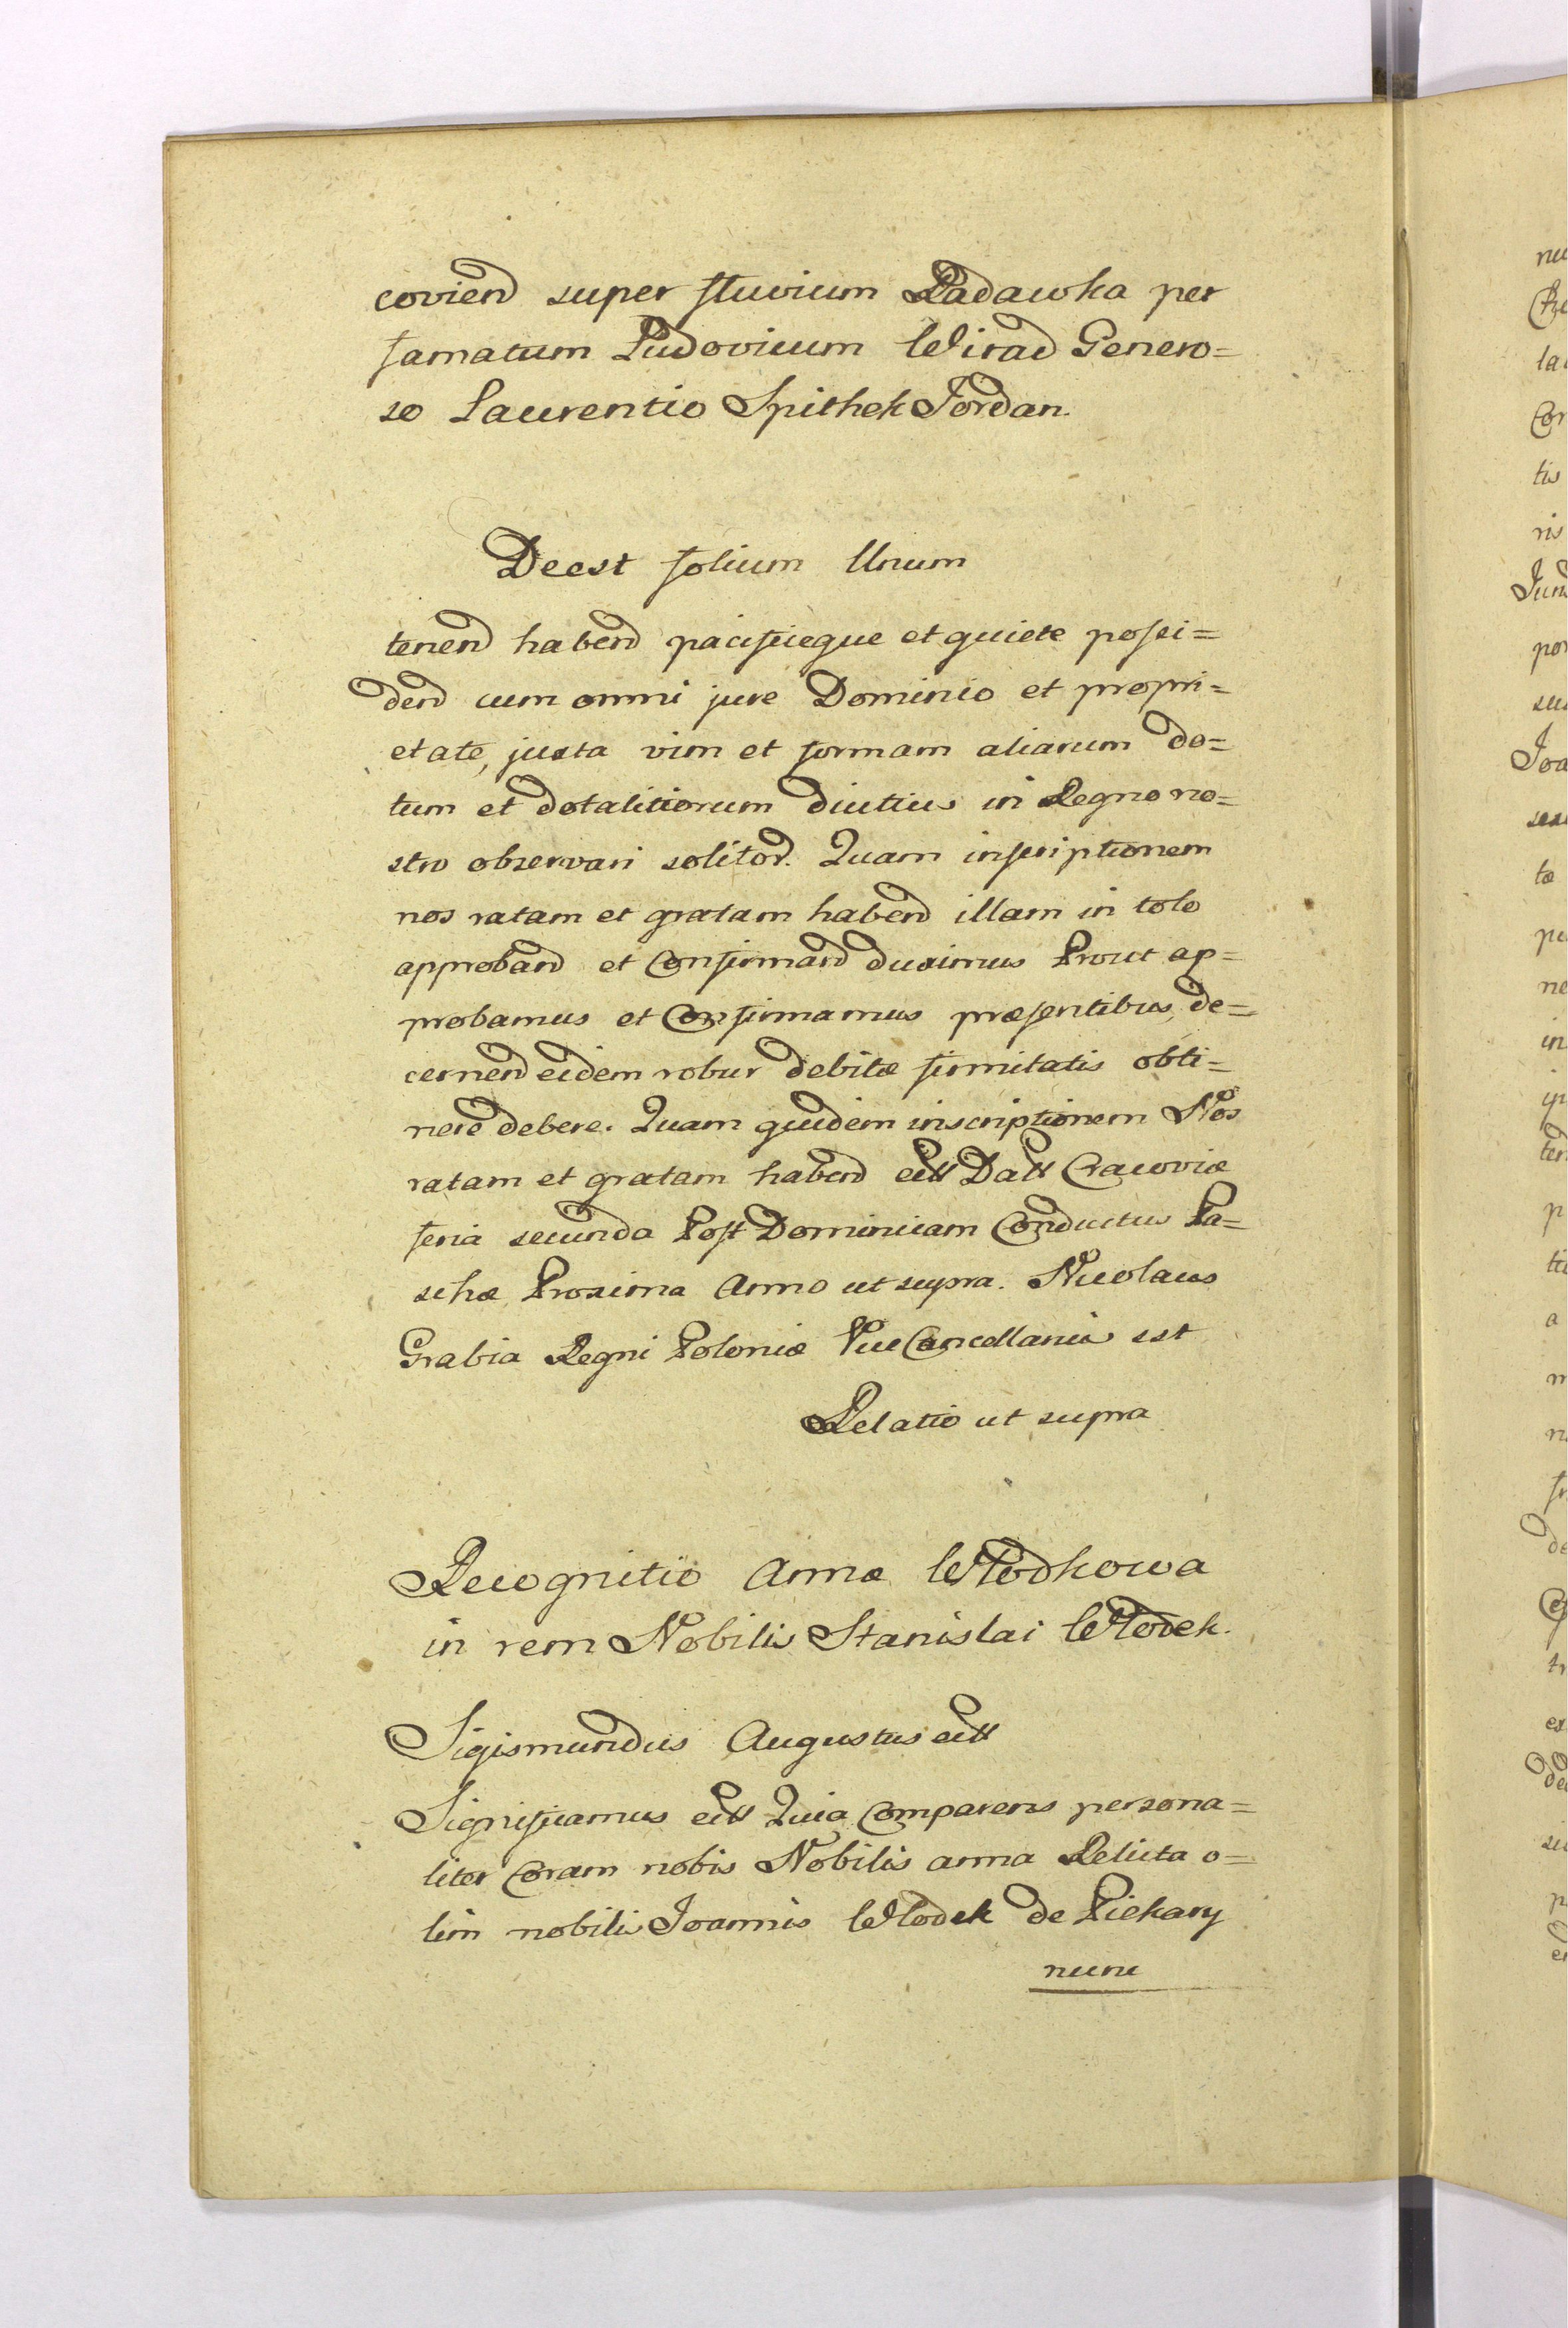 coviend super fluvium Radawka per
famatum Ludovicum Wirad Genero=
so Laurentio Spithek Jordan.
Deest folium Unum
tenend habend pacificeque et quiete possi=
dend cum omni jure Dominio et propri=
etate, juxta vim et formam aliarum do=
tum et dotalitiorum diutius in Regno no=
stro observari solitor. Quam inscriptionem
nos ratam et gratam habend illam in toto
approband et Confirmand duximus Prout ap=
probamus et Confirmamus præsentibus, de=
cernend eidem robur debitæ firmitatis obti=
nere debere. Quam quidem inscriptionem Nos
ratam et gratam habend ett Datt Cracoviæ
feria secunda Post Dominicam Conductus Pa=
schæ Proxima Anno ut supra. Nicolaus
Grabia Regni Poloniæ Vice Cancellarius sst
Relatio ut supra
Recognitio Annæ Włodkowa
in rem Nobilis Stanislai Włodek.
Sigismundus Augustus ett
Significamus ett Quia Comparens persona=
liter Coram nobis Nobilis anna Relicta o=
lim nobilis Joannis Wlodek de Piekary
nunc